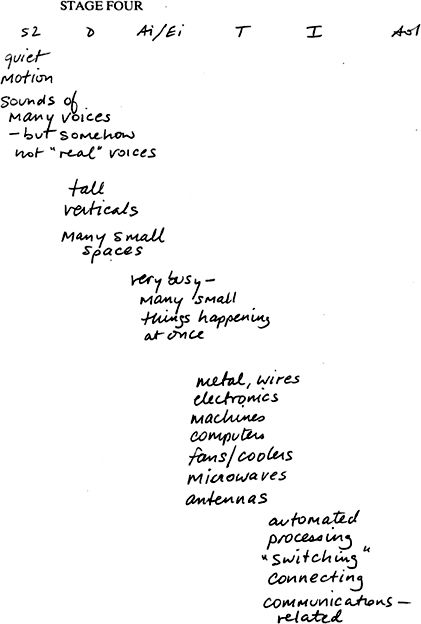 STAGE FOUR
S2 D Ai/Ei T I Aol
quiet
motion
sounds of
many voices
– but somehow
not "real" voices
tall
verticals
many small
spaces
very busy –
many small
things happening
at once
metal, wires
electronics
machines
computers
fans/coolers
microwaves
antennas
automated
processing
"switching"
connecting
communications –
related